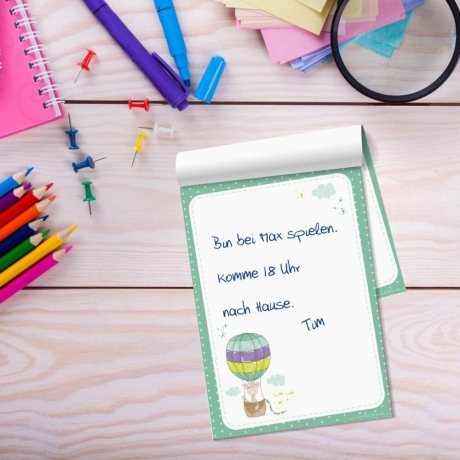 Bin bei Max spielen.
Komme 18 Uhr
nach Hause.
Tim